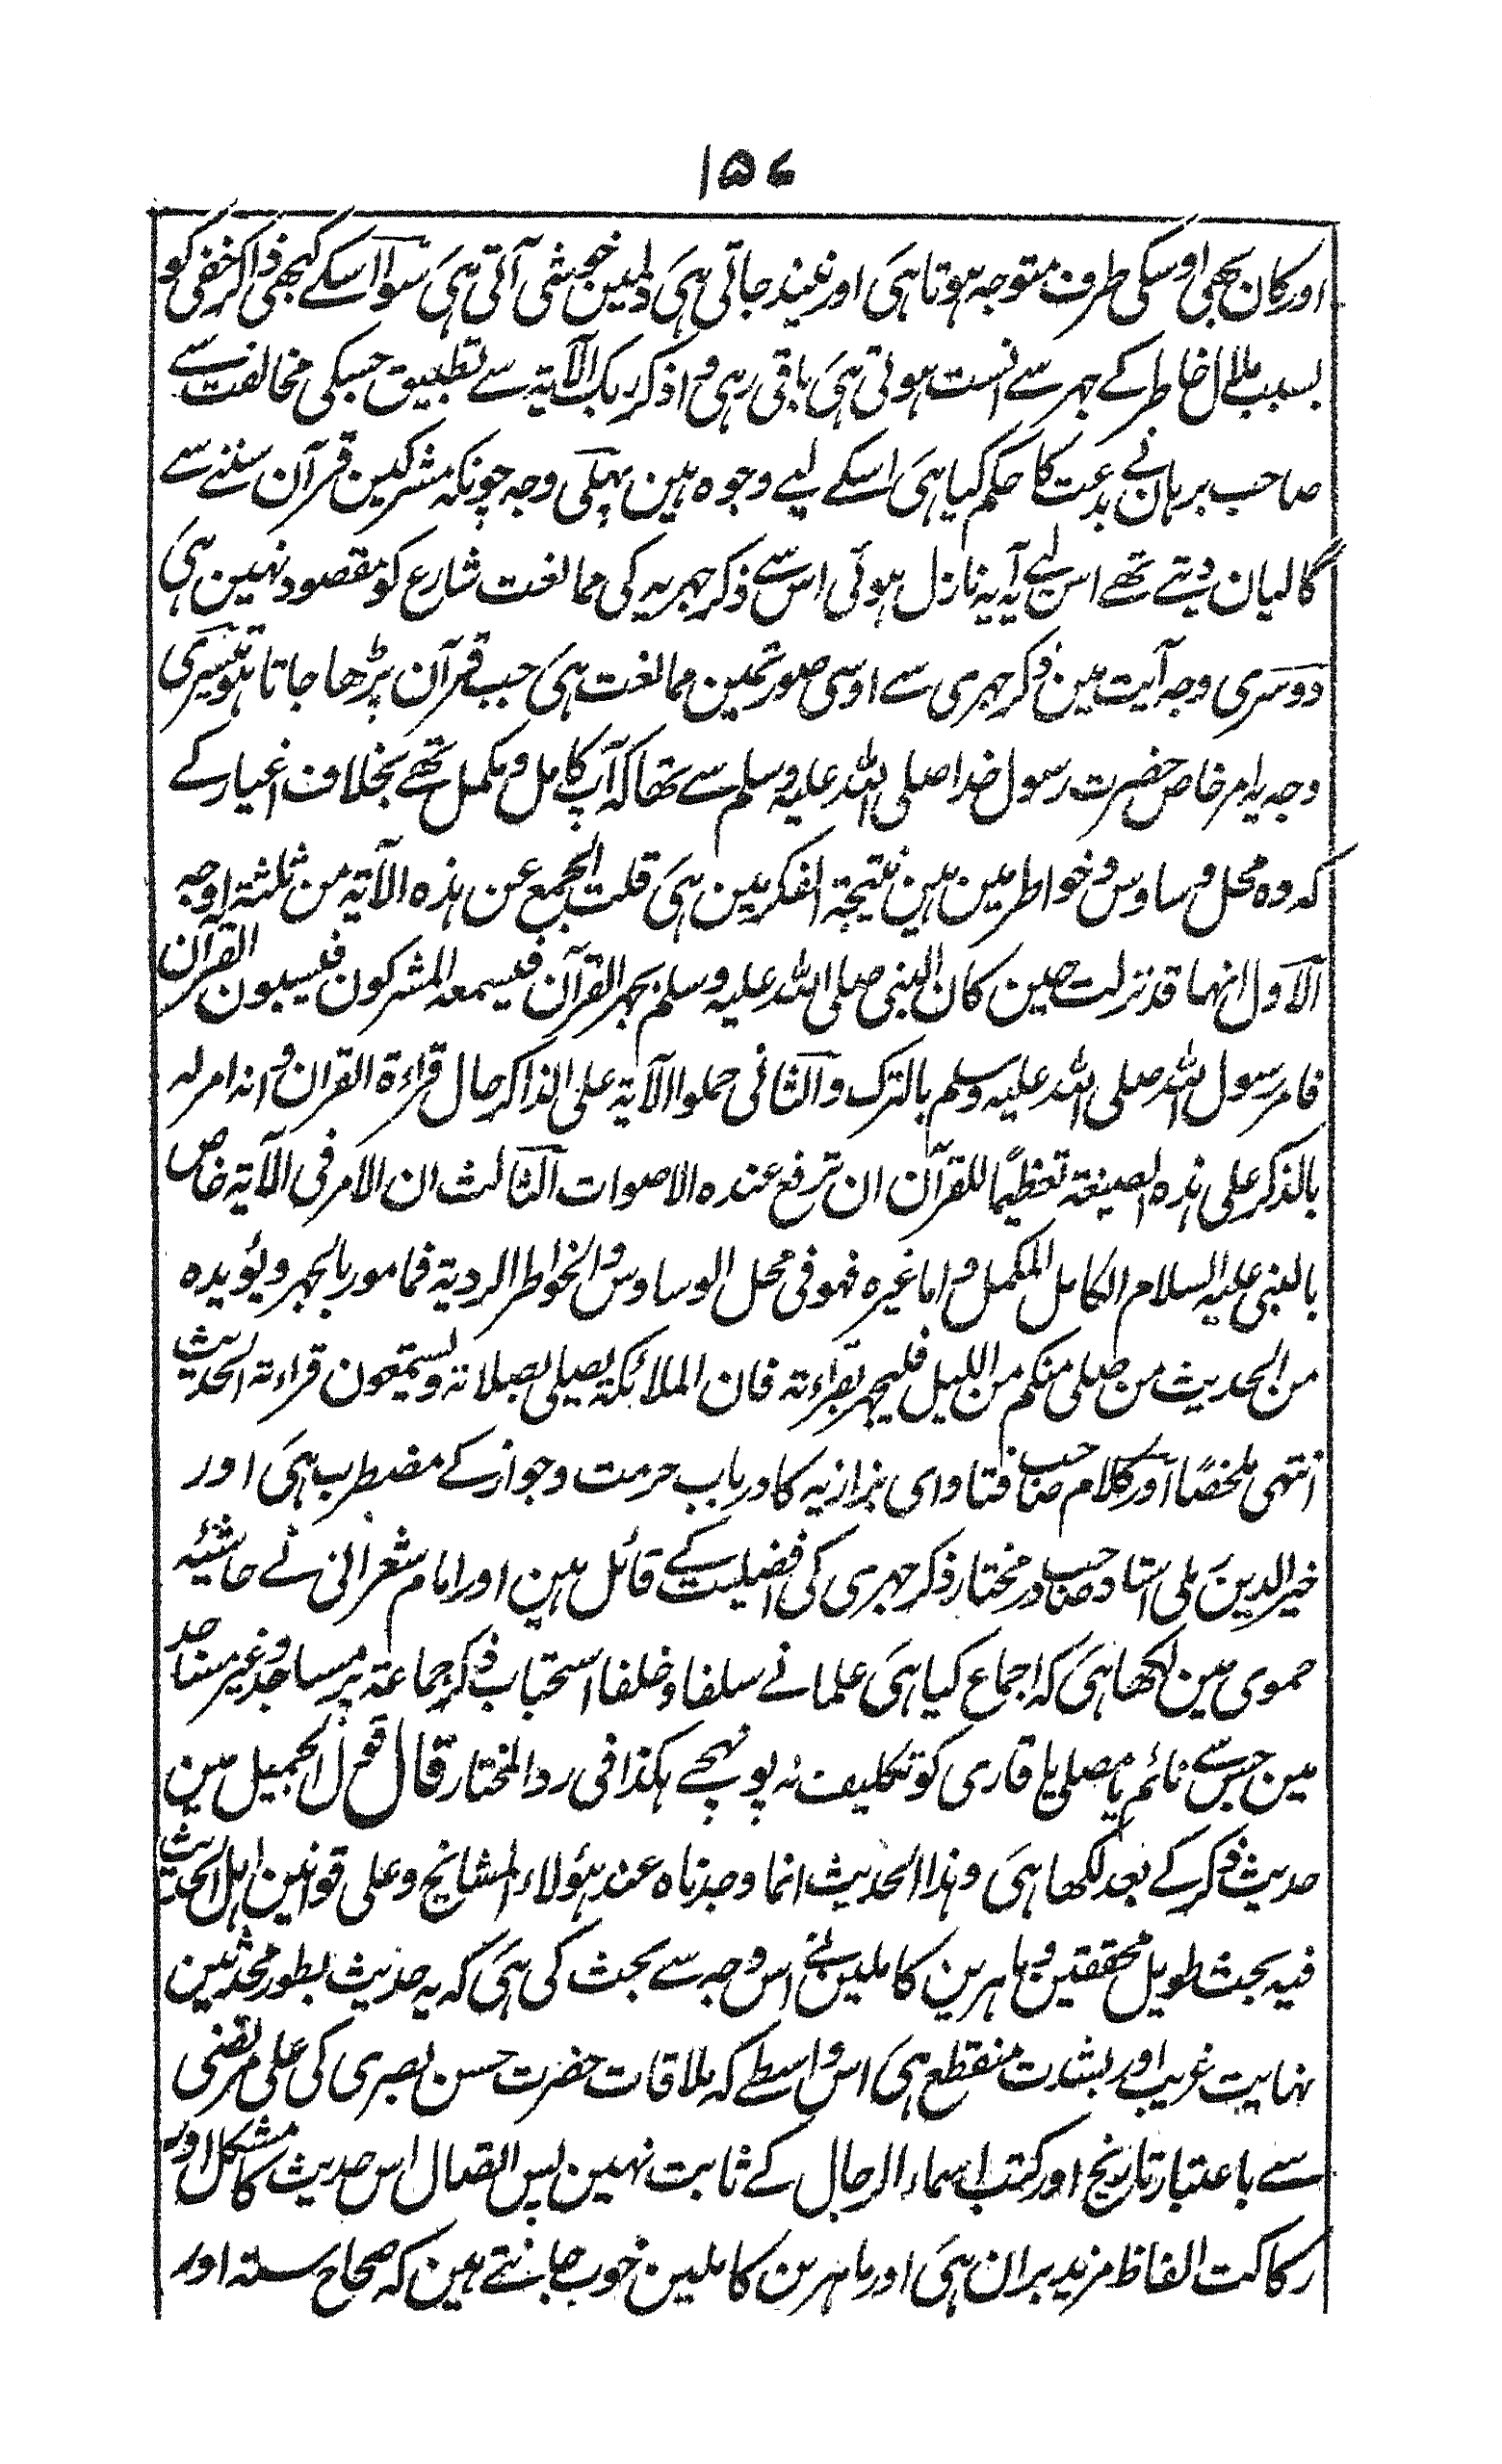 ۱۵۷
اور کان بھی اوسکی طرف متوجہ ہوتا ہی اور نیند جاتی ہی دلمین خوشی آتی ہی سوا اسکے کبھی ذاکر خفی کو
بسبب ملال خاطر کے جہر سے انست ہوتی ہی باقی رہی و اذکر ربک الآیة سے تطبیق جسکی مخالفت سے
صاحب برہان نے بدعت کا حکم کیا ہی اسکے لیے وجوہ ہین پہلی وجہ چونکہ مشرکین قرآن سننے سے
گالیان دیتے تھے اس لیے آیہ یہ نازل ہوئی اس سے ذکر جہریہ کی ممانعت شارع کو مقصود نہین ہی
دوسری وجہ آیت مین ذکر جہری سے اوسی صورتمین ممانعت ہی جب قرآن پڑھا جاتا ہو تیسری
وجہ یہ امر خاص حضرت رسول خدا صلی اللہ علیہ وسلم سے تھا کہ آپ کامل و مکمل تھے بخلاف اغیار کے
کہ وہ محل وساوس و خواطر مین ہین نتیجة الفکر مین ہی قلت الجمع عن ہذہ الآیة من ثلثة اوجہ
الاول انہا قد نزلت حین کان النبی صلی اللہ علیہ وسلم یجہر القرآن فیسمعہ المشرکون فیسبون القرآن
فامر رسول اللہ صلی اللہ علیہ وسلم بالترک والثانی حملوا الآیة علی الذاکر حال قراءة القران و انہ امر لہ
بالذکر علی ہذہ الصیغة تعظیمًا للقرآن ان ترفع عندہ الاصوات الثالث ان الامر فی الآیة خاص
بالنبی علیہ السلام الکامل المکمل و اما غیرہ فہو فی محل الوساوس والخواطر الردیة فمامور بالجہر و یؤیدہ
من الحدیث من صلی منکم من اللیل فلیجہر بقراءتہ فان الملائکة یصلی بصلاتہ و یستمعون قراءتہ الحدیث
انتہی ملخصًا اور کلام صاحب فتاوای بزازیہ کا درباب حرمت و جواز کے مضطرب ہی اور
خیر الدین رملی استاد صاحب در مختار ذکر جہری کی افضلیت کے قائل ہین اور امام شعرانی نے حاشیہ
حموی مین لکھا ہی کہ اجماع کیا ہی علما نے سلفا و خلفا استحباب ذکر جماعة پر مساجد و غیر مساجد
مین جس سے نائم یا مصلی یا قاری کو تکلیف نہ پونہچے ہکذا فی رد المختار قال قول الجمیل مین
حدیث ذکر کے بعد لکھا ہی وہذا الحدیث انما وجدناہ عند ہؤلاء المشایخ و علی قوانین اہل الحدیث
فیہ بحث طویل محققین و ماہرین کاملین نے اس وجہ سے بحث کی ہی کہ یہ حدیث بطور محدثین
نہایت غریب اور بشدت منقطع ہی اس واسطے کہ ملاقات حضرت حسن بصری کی علی مرتضی
سے باعتبار تاریخ اور کتب اسماء الرجال کے ثابت نہین پس اتصال اس حدیث کا مشکل اور
رکاکت الفاظ مزید بران ہی اور ماہرین کاملین خوب جانتے ہین کہ صحاح ستہ اور